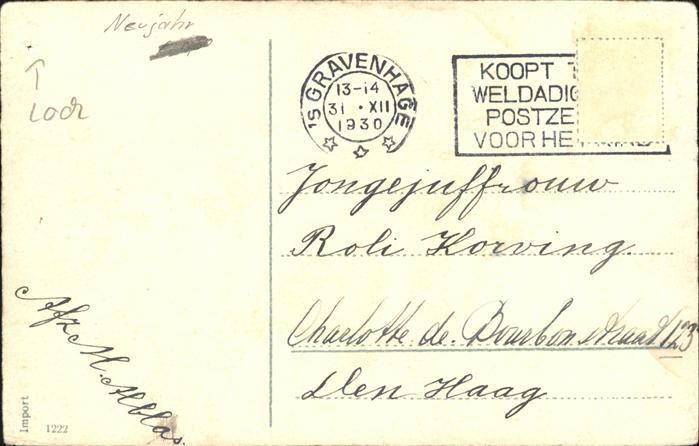 Neujahr
'S GRAVENHAGE
13-14
31 · XII
1930
KOOPT
WELDADIG
POSTZE
VOOR HE
Jongejuffrouw
Roli Korving.
Charlotte de Bourbonstraat 123
Den Haag
Afz M. Alblas.
Import 1222